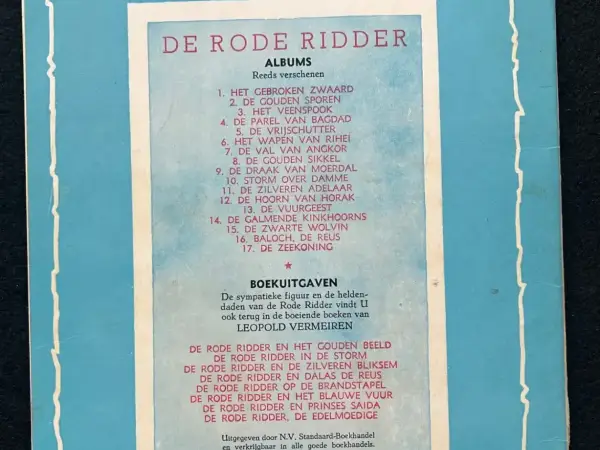 DE RODE RIDDER
ALBUMS
Reeds verschenen
1. HET GEBROKEN ZWAARD
2. DE GOUDEN SPOREN
3. HET VEENSPOOK
4. DE PAREL VAN BAGDAD
5. DE VRIJSCHUTTER
6. HET WAPEN VAN RIHEI
7. DE VAL VAN ANGKOR
8. DE GOUDEN SIKKEL
9. DE DRAAK VAN MOERDAL
10. STORM OVER DAMME
11. DE ZILVEREN ADELAAR
12. DE HOORN VAN HORAK
13. DE VUURGEEST
14. DE GALMENDE KINKHOORNS
15. DE ZWARTE WOLVIN
16. BALOCH, DE REUS
17. DE ZEEKONING
★
BOEKUITGAVEN
De sympatieke figuur en de helden-
daden van de Rode Ridder vindt U
ook terug in de boeiende boeken van
LEOPOLD VERMEIREN
DE RODE RIDDER EN HET GOUDEN BEELD
DE RODE RIDDER IN DE STORM
DE RODE RIDDER EN DE ZILVEREN BLIKSEM
DE RODE RIDDER EN DALAS DE REUS
DE RODE RIDDER OP DE BRANDSTAPEL
DE RODE RIDDER EN HET BLAUWE VUUR
DE RODE RIDDER EN PRINSES SAIDA
DE RODE RIDDER, DE EDELMOEDIGE
Uitgegeven door N.V. Standaard-Boekhandel
en verkrijgbaar in alle goede boekhandels.